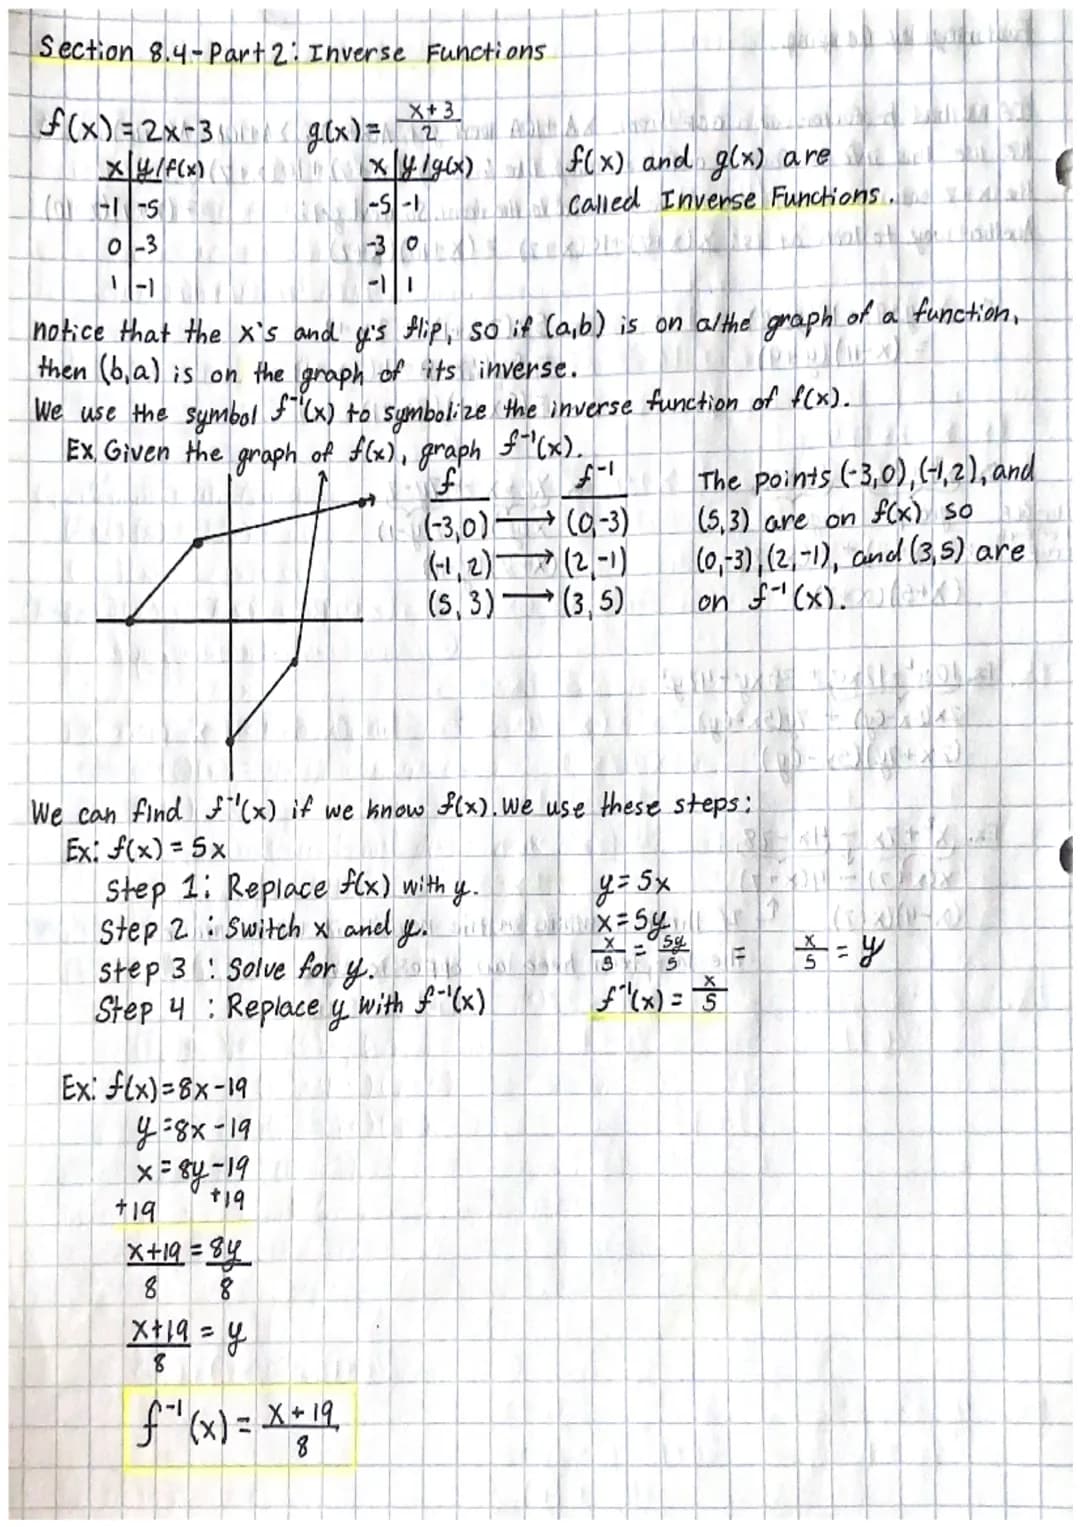 Section 8.4-Part 2: Inverse Functions
f(x) = 2x-3 g(x) = x+3/2
x | y/f(x) x | y/g(x) f(x) and g(x) are
-1 | -5 -5 | -1 called Inverse Functions.
0 | -3 -3 | 0
1 | -1 -1 | 1
notice that the x's and y's flip, so if (a,b) is on a/the graph of a function,
then (b,a) is on the graph of its inverse.
We use the symbol f⁻¹(x) to symbolize the inverse function of f(x).
Ex. Given the graph of f(x), graph f⁻¹(x).
f f⁻¹
(-3,0) → (0,-3)
(-1,2) → (2,-1)
(5,3) → (3,5)
The points (-3,0), (-1,2), and
(5,3) are on f(x) so
(0,-3), (2,-1), and (3,5) are
on f⁻¹(x).
We can find f⁻¹(x) if we know f(x). We use these steps:
Ex: f(x) = 5x
Step 1: Replace f(x) with y. y = 5x
Step 2 : Switch x and y. x = 5y
step 3 : Solve for y. x/5 = 5y/5 = x/5 = y
Step 4 : Replace y with f⁻¹(x) f⁻¹(x) = x/5
Ex: f(x) = 8x-19
y = 8x-19
x = 8y-19
+19 +19
x+19 = 8y
8 8
x+19 = y
8
f⁻¹(x) = x+19
8